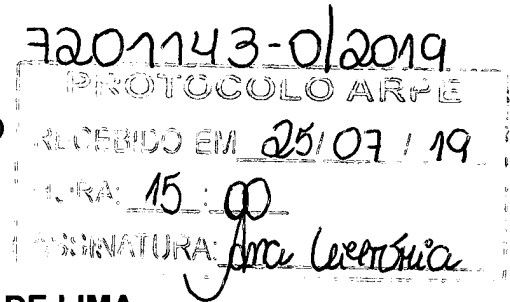 7201143-0/2019
PROTOCOLO ARPE
RECEBIDO EM 25/07/19
HORA: 15:00
ASSINATURA: Ana
DE LIMA